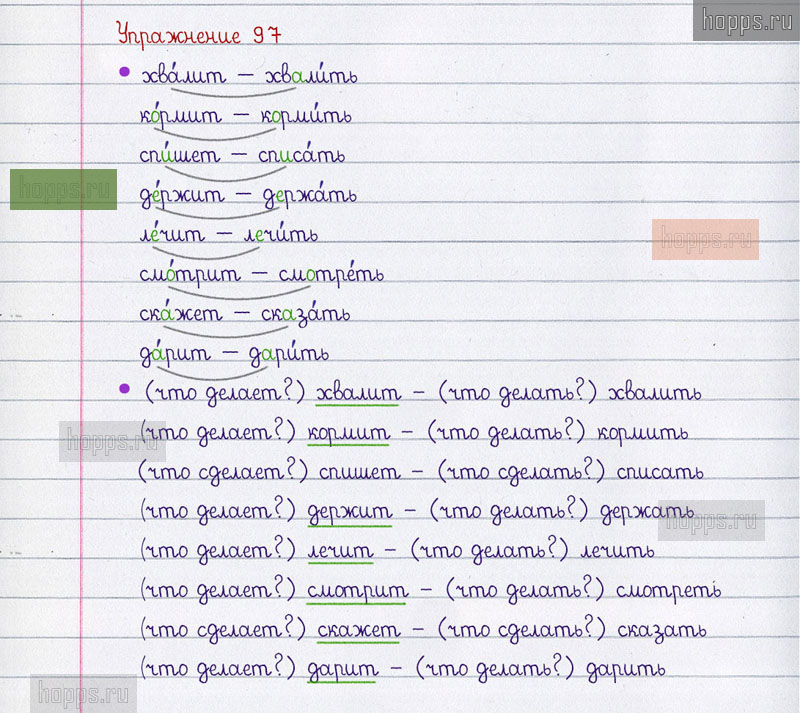 hopps.ru
Упражнение 97
• хва́лит – хвали́ть
ко́рмит – корми́ть
спи́шет – списа́ть
hopps.ru
де́ржит – держа́ть
ле́чит – лечи́ть
hopps.ru
смо́трит – смотре́ть
ска́жет – сказа́ть
да́рит – дари́ть
• (что делает?) хвалит – (что делать?) хвалить
(что делает?) кормит – (что делать?) кормить
hopps.ru
(что сделает?) спишет – (что сделать?) списать
(что делает?) держит – (что делать?) держать
hopps.ru
(что делает?) лечит – (что делать?) лечить
(что делает?) смотрит – (что делать?) смотреть
(что сделает?) скажет – (что сделать?) сказать
(что делает?) дарит – (что делать?) дарить
hopps.ru